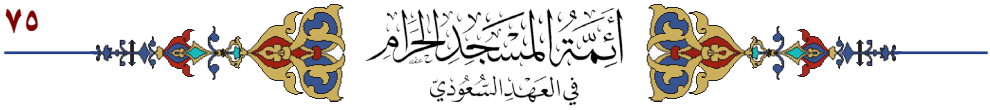 ٧٥
أَئِمَّةُ المَسْجِدِ الحَرَامِ
في العَهْدِ السُّعُودِيّ